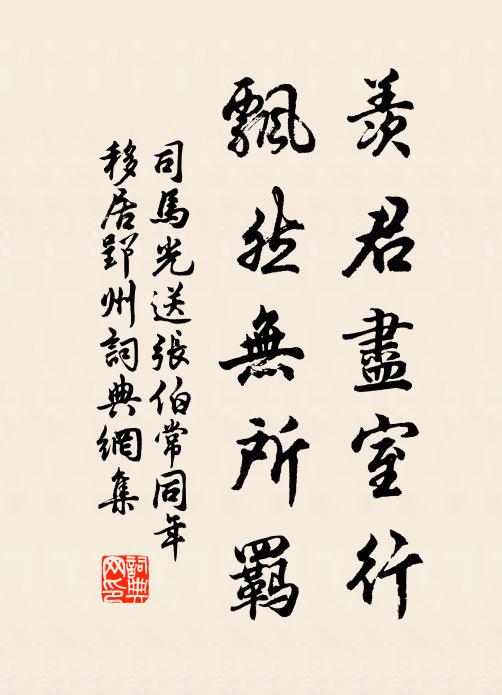 羨君盡室行
飄然無所羈
司馬光送張伯常同年
移居郢州詞典網集
詞典
网印